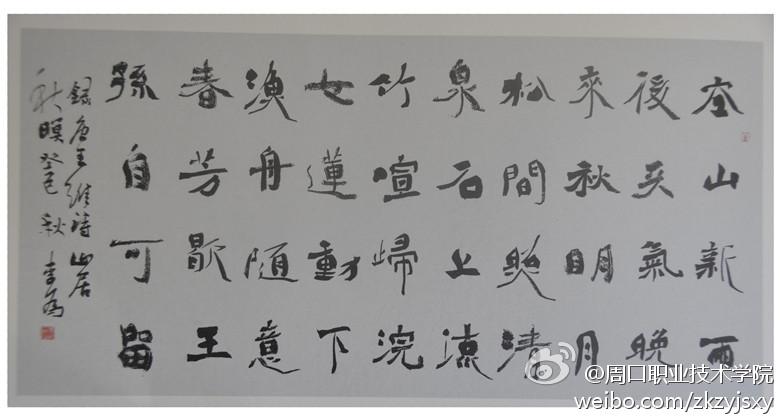 空山新雨
後天氣晚
來秋明月
松間照清
泉石上流
竹喧歸浣
女蓮動下
漁舟隨意
春芳歇王
孫自可留
錄唐王維詩山居
秋暝癸巳秋李
@周口职业技术学院
weibo.com/zkzyjsxy